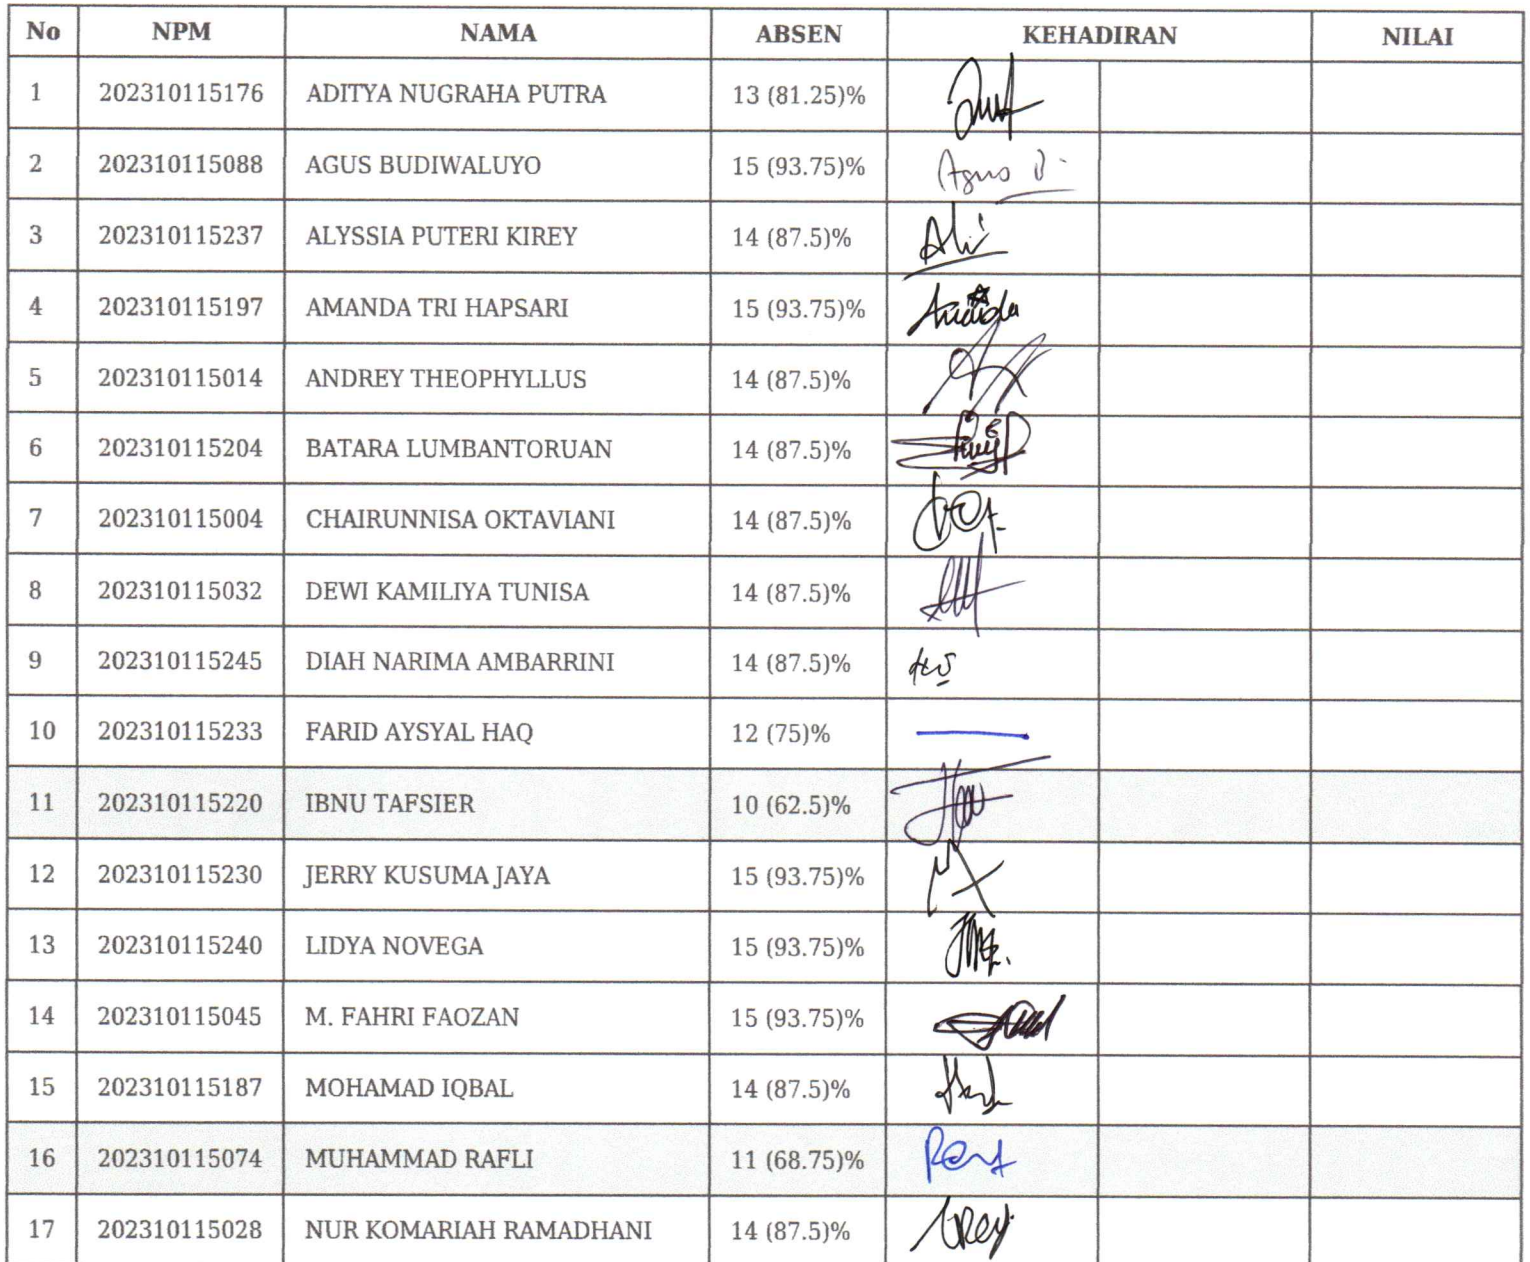 No NPM NAMA ABSEN KEHADIRAN NILAI
1 202310115176 ADITYA NUGRAHA PUTRA 13 (81.25)%
2 202310115088 AGUS BUDIWALUYO 15 (93.75)% Agus B
3 202310115237 ALYSSIA PUTERI KIREY 14 (87.5)%
4 202310115197 AMANDA TRI HAPSARI 15 (93.75)%
5 202310115014 ANDREY THEOPHYLLUS 14 (87.5)%
6 202310115204 BATARA LUMBANTORUAN 14 (87.5)%
7 202310115004 CHAIRUNNISA OKTAVIANI 14 (87.5)%
8 202310115032 DEWI KAMILIYA TUNISA 14 (87.5)%
9 202310115245 DIAH NARIMA AMBARRINI 14 (87.5)%
10 202310115233 FARID AYSYAL HAQ 12 (75)%
11 202310115220 IBNU TAFSIER 10 (62.5)%
12 202310115230 JERRY KUSUMA JAYA 15 (93.75)%
13 202310115240 LIDYA NOVEGA 15 (93.75)%
14 202310115045 M. FAHRI FAOZAN 15 (93.75)%
15 202310115187 MOHAMAD IQBAL 14 (87.5)%
16 202310115074 MUHAMMAD RAFLI 11 (68.75)%
17 202310115028 NUR KOMARIAH RAMADHANI 14 (87.5)%